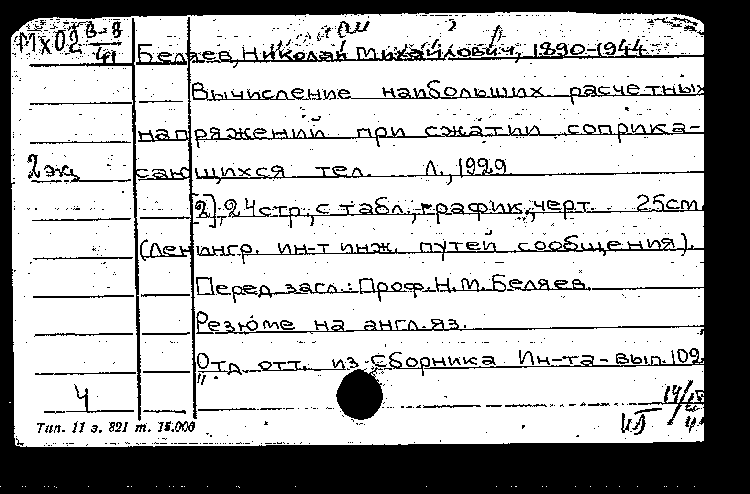 Мх02 В-9/41
Беляев, Николай Михайлович, 1890-1944
Вычисление наибольших расчетных
напряжений при сжатии соприка-
2 экз сающихся тел. Л., 1929
[2], 24 стр., с табл., график., черт. 25 см.
(Ленингр. ин-т инж. путей сообщения).
Перед загл.: Проф. Н.М. Беляев.
Резюме на англ. яз.
Отд. отт. из "Сборника Ин-та - вып. 102
4
Тип. 11 з. 821 т. 15.000